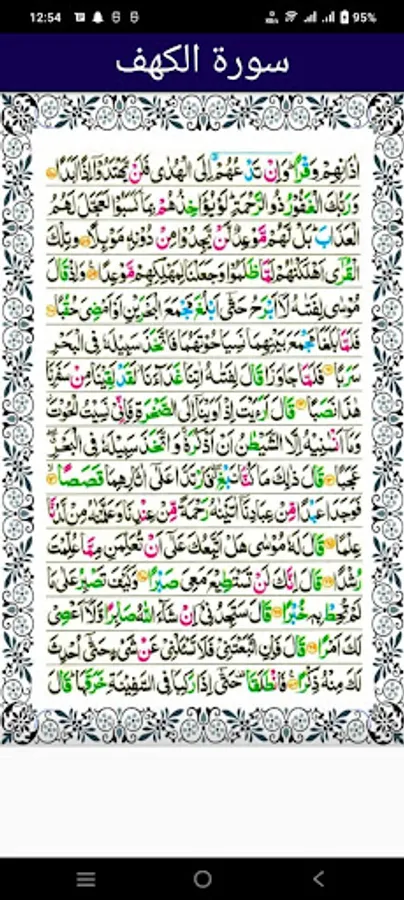 12:54
95%
سورة الكهف
اٰذَانِهِمْ وَقْرًا ؕ وَاِنْ تَدْعُهُمْ اِلَى الْهُدٰى فَلَنْ يَّهْتَدُوْۤا اِذًا اَبَدًا
وَرَبُّكَ الْغَفُوْرُ ذُو الرَّحْمَةِ ؕ لَوْ يُؤَاخِذُهُمْ بِمَا كَسَبُوْا لَعَجَّلَ لَهُمُ
الْعَذَابَ ؕ بَلْ لَّهُمْ مَّوْعِدٌ لَّنْ يَّجِدُوْا مِنْ دُوْنِهٖ مَوْىِٕلًا وَتِلْكَ
الْقُرٰۤى اَهْلَكْنٰهُمْ لَمَّا ظَلَمُوْا وَجَعَلْنَا لِمَهْلِكِهِمْ مَّوْعِدًا وَاِذْ قَالَ
مُوْسٰى لِفَتٰىهُ لَاۤ اَبْرَحُ حَتّٰۤى اَبْلُغَ مَجْمَعَ الْبَحْرَيْنِ اَوْ اَمْضِيَ حُقُبًا
فَلَمَّا بَلَغَا مَجْمَعَ بَيْنِهِمَا نَسِيَا حُوْتَهُمَا فَاتَّخَذَ سَبِيْلَهٗ فِى الْبَحْرِ
سَرَبًا فَلَمَّا جَاوَزَا قَالَ لِفَتٰىهُ اٰتِنَا غَدَآءَنَا لَقَدْ لَقِيْنَا مِنْ سَفَرِنَا
هٰذَا نَصَبًا قَالَ اَرَءَيْتَ اِذْ اَوَيْنَاۤ اِلَى الصَّخْرَةِ فَاِنِّيْ نَسِيْتُ الْحُوْتَ
وَمَاۤ اَنْسٰىنِيْهُ اِلَّا الشَّيْطٰنُ اَنْ اَذْكُرَهٗ ۚ وَاتَّخَذَ سَبِيْلَهٗ فِى الْبَحْرِ
عَجَبًا قَالَ ذٰلِكَ مَا كُنَّا نَبْغِ فَارْتَدَّا عَلٰۤى اٰثَارِهِمَا قَصَصًا
فَوَجَدَا عَبْدًا مِّنْ عِبَادِنَاۤ اٰتَيْنٰهُ رَحْمَةً مِّنْ عِنْدِنَا وَعَلَّمْنٰهُ مِنْ لَّدُنَّا
عِلْمًا قَالَ لَهٗ مُوْسٰى هَلْ اَتَّبِعُكَ عَلٰۤى اَنْ تُعَلِّمَنِ مِمَّا عُلِّمْتَ
رُشْدًا قَالَ اِنَّكَ لَنْ تَسْتَطِيْعَ مَعِيَ صَبْرًا وَكَيْفَ تَصْبِرُ عَلٰى مَا
لَمْ تُحِطْ بِهٖ خُبْرًا قَالَ سَتَجِدُنِيْۤ اِنْ شَآءَ اللّٰهُ صَابِرًا وَّلَاۤ اَعْصِيْ
لَكَ اَمْرًا قَالَ فَاِنِ اتَّبَعْتَنِيْ فَلَا تَسْـَٔلْنِيْ عَنْ شَيْءٍ حَتّٰۤى اُحْدِثَ
لَكَ مِنْهُ ذِكْرًا فَانْطَلَقَا حَتّٰۤى اِذَا رَكِبَا فِى السَّفِيْنَةِ خَرَقَهَا ؕ قَالَ